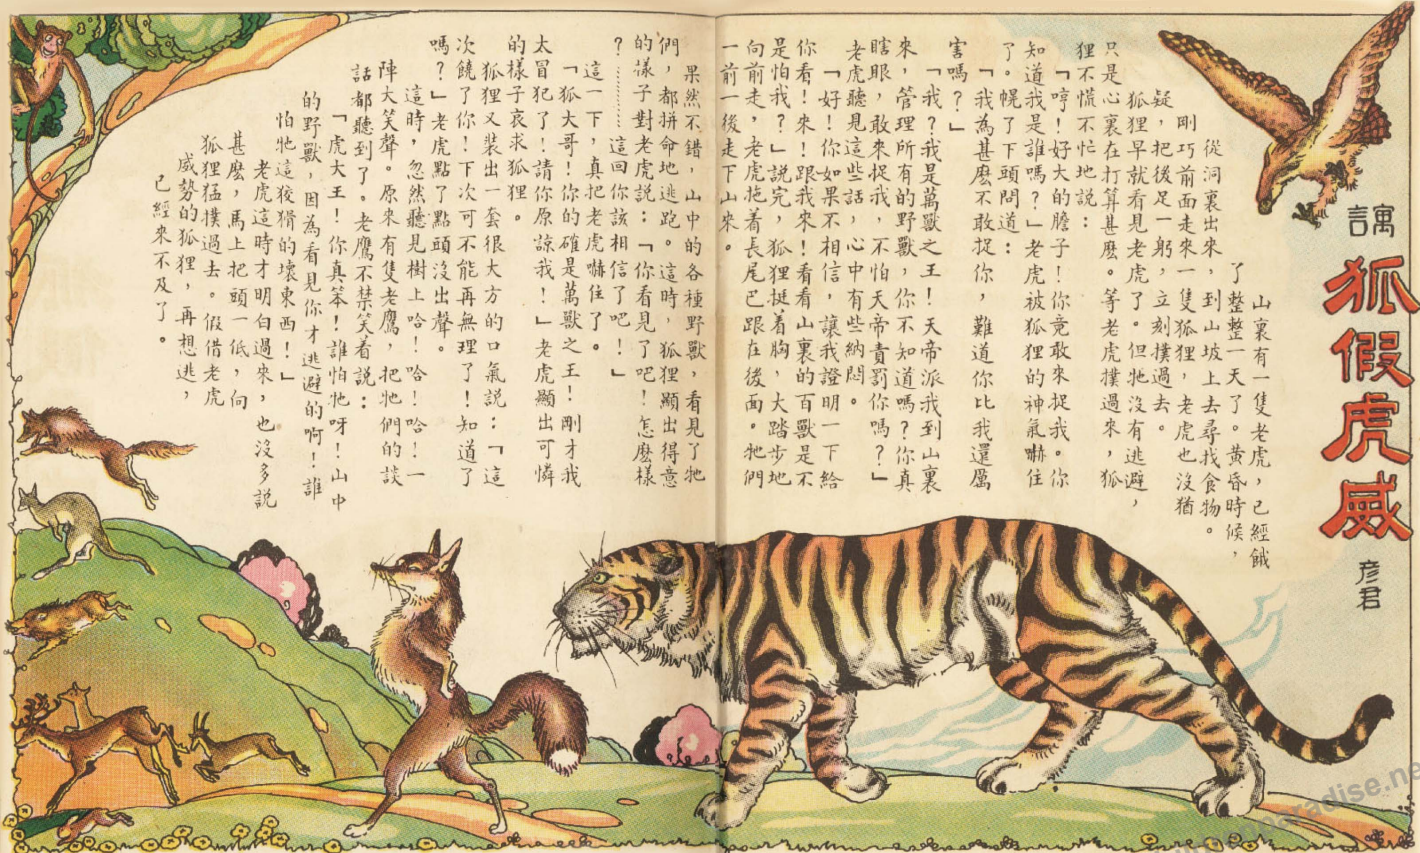 寓言
狐假虎威
彥君
山裏有一隻老虎，已經餓
了整整一天了。黄昏時候，
從洞裏出來，到山坡上去尋找食物。
剛巧前面走來一隻狐狸，老虎也沒猶
疑，把後足一躬，立刻撲過去。
狐狸早就看見老虎了。但牠沒有逃避，
只是心裏在打算甚麽。等老虎撲過來，狐
狸不慌不忙地説：
「哼！好大的膽子！你竟敢來捉我。你
知道我是誰嗎？」老虎被狐狸的神氣嚇住
了。愰了下頭問道：
「我為甚麽不敢捉你，難道你比我還厲
害嗎？」
「我？我是萬獸之王！天帝派我到山裏
來，管理所有的野獸，你不知道嗎？你真
瞎眼，敢來捉我，不怕天帝責罰你嗎？」
老虎聽見這些話，心中有些納悶。
「好！你如果不相信，讓我證明一下給
你看！來！跟我來！看看山裏的百獸是不
是怕我？」説完，狐狸挺着胸，大踏步地
向前走，老虎拖着長尾巴跟在後面。牠們
一前一後走下山來。
果然不錯，山中的各種野獸，看見了牠
們，都拼命地逃跑。這時，狐狸顯出得意
的樣子對老虎説：「你看見了吧！怎麽樣
？………這回你該相信了吧！」
這一下，真把老虎嚇住了。
「狐大哥！你的確是萬獸之王！剛才我
太冒犯了！請你原諒我！」老虎顯出可憐
的樣子哀求狐狸。
狐狸又裝出一套很大方的口氣説：「這
次饒了你！下次可不能再無理了！知道了
嗎？」老虎點了點頭沒出聲。
這時，忽然聽見樹上哈！哈！哈！一
陣大笑聲。原來有隻老鷹，把牠們的談
話都聽到了。老鷹不禁笑着説：
「虎大王！你真笨！誰怕牠呀！山中
的野獸，因為看見你才逃避的啊！誰
怕牠這狡猾的壞東西！」
老虎這時才明白過來，也沒多説
甚麽，馬上把頭一低，向
狐狸猛撲過去。假借老虎
威勢的狐狸，再想逃，
已經來不及了。